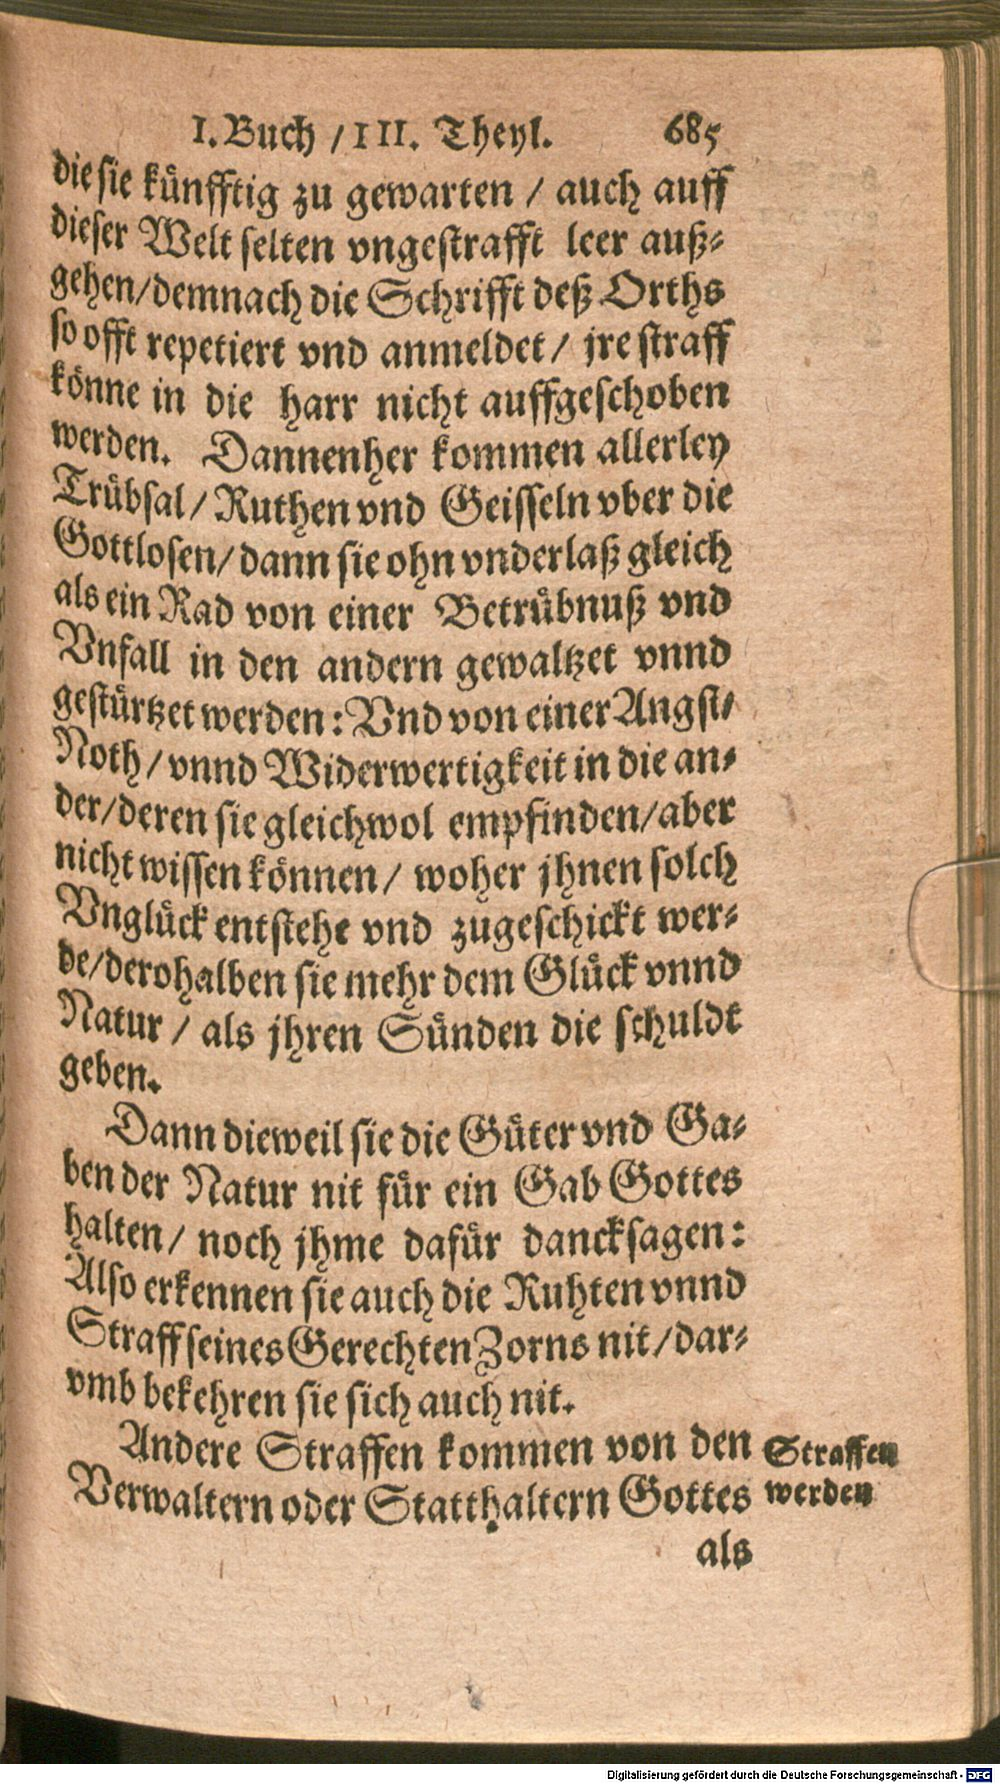 I. Buch / III. Theyl. 685
die sie künfftig zu gewarten / auch auff
dieser Welt selten vngestrafft leer auß-
gehen/demnach die Schrifft deß Orths
so offt repetiert vnd anmeldet/ jre straff
könne in die harr nicht auffgeschoben
werden. Dannenher kommen allerley
Trübsal/ Ruthen vnd Geisseln vber die
Gottlosen/ dann sie ohn vnderlaß gleich
als ein Rad von einer Betrübnuß vnd
Vnfall in den andern gewaltzet vnnd
gestürtzet werden: Vnd von einer Angst/
Noth/ vnnd Widerwertigkeit in die an-
der/deren sie gleichwol empfinden/aber
nicht wissen können/ woher jhnen solch
Vnglück entstehe vnd zugeschickt wer-
de/derohalben sie mehr dem Glück vnnd
Natur / als jhren Sünden die schuldt
geben.
Dann dieweil sie die Güter vnd Ga-
ben der Natur nit für ein Gab Gottes
halten/ noch jhme dafür dancksagen:
Also erkennen sie auch die Ruhten vnnd
Straff seines Gerechten Zorns nit/dar-
vmb bekehren sie sich auch nit.
Andere Straffen kommen von den
Verwaltern oder Statthaltern Gottes
Straffen
werden
als
Digitalisierung gefördert durch die Deutsche Forschungsgemeinschaft - DFG